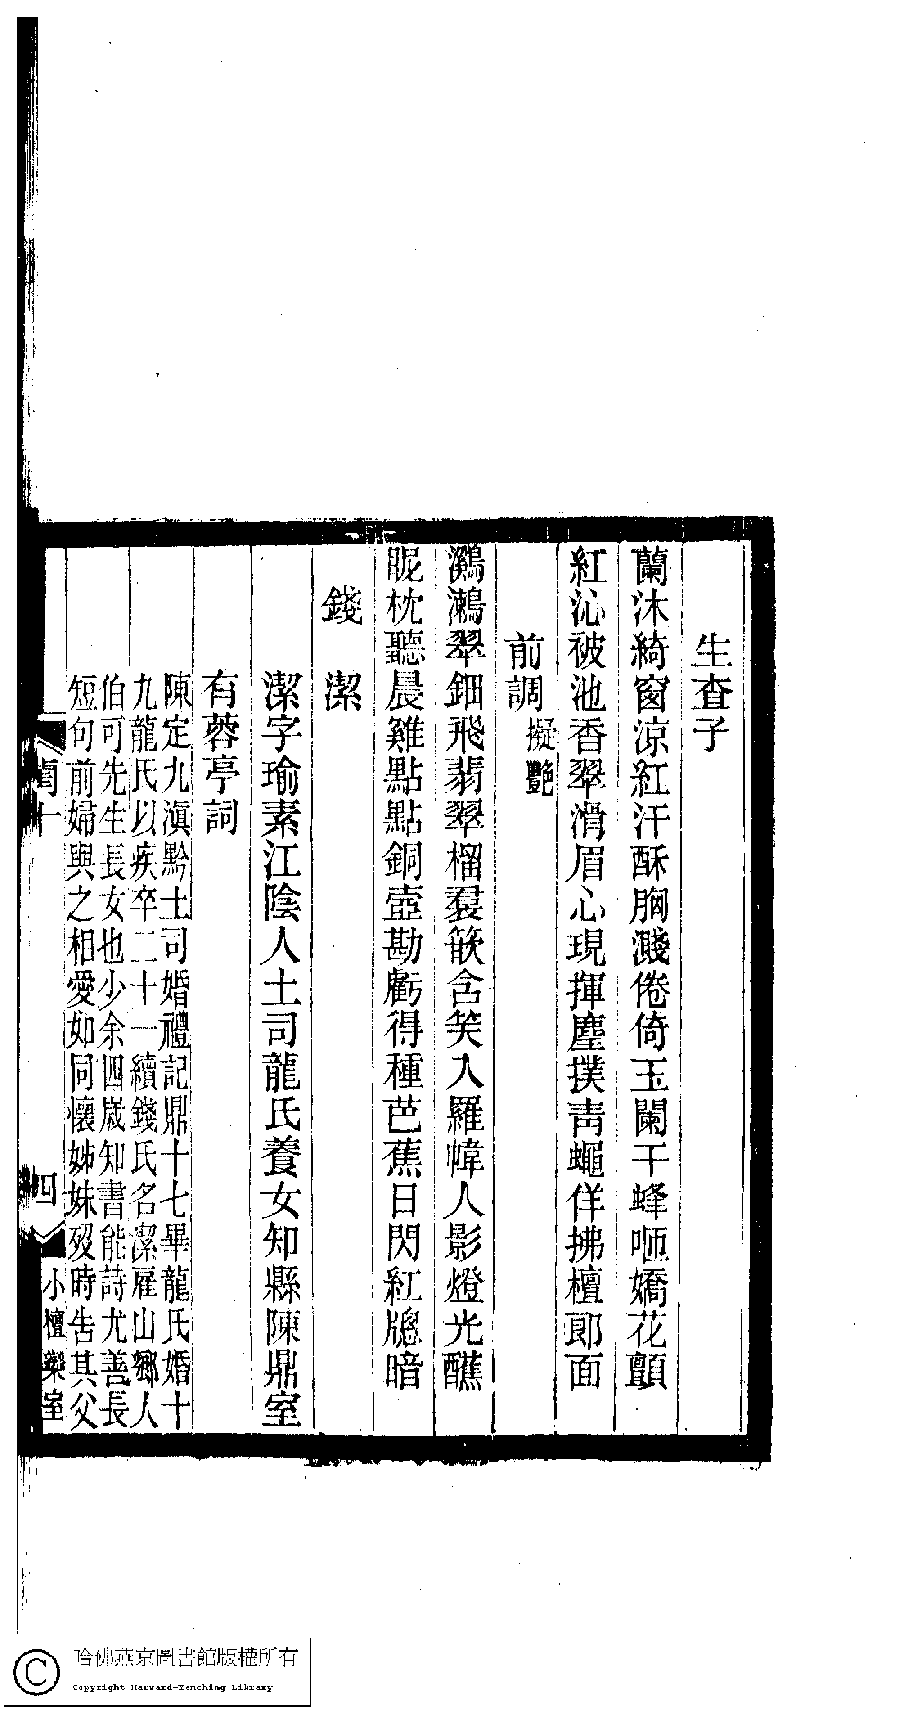 生查子
蘭沐綺窗涼紅汗酥胸濺倦倚玉闌干蜂咂嬌花顫
紅沁被池香翠滑眉心現揮麈撲青蠅佯拂檀郎面
前調 擬艷
鸂鶒翠鈿飛翡翠榴裙簌含笑入羅幃人影燈光醮
眤枕聽晨雞點點銅壺勘虧得種芭蕉日閃紅牕暗
錢 潔
潔字瑜素江陰人土司龍氏養女知縣陳鼎室
有蓉亭詞
陳定九滇黔土司婚禮記鼎十七畢龍氏婚十
九龍氏以疾卒二十一續錢氏名潔雁山鄉人
伯可先生長女也少余四歲知書能詩尤善長
短句前婦與之相愛如同懷姊妹歿時告其父
閨十
四
小檀欒室
哈佛燕京圖書館版權所有
Copyright Harvard-Yenching Library